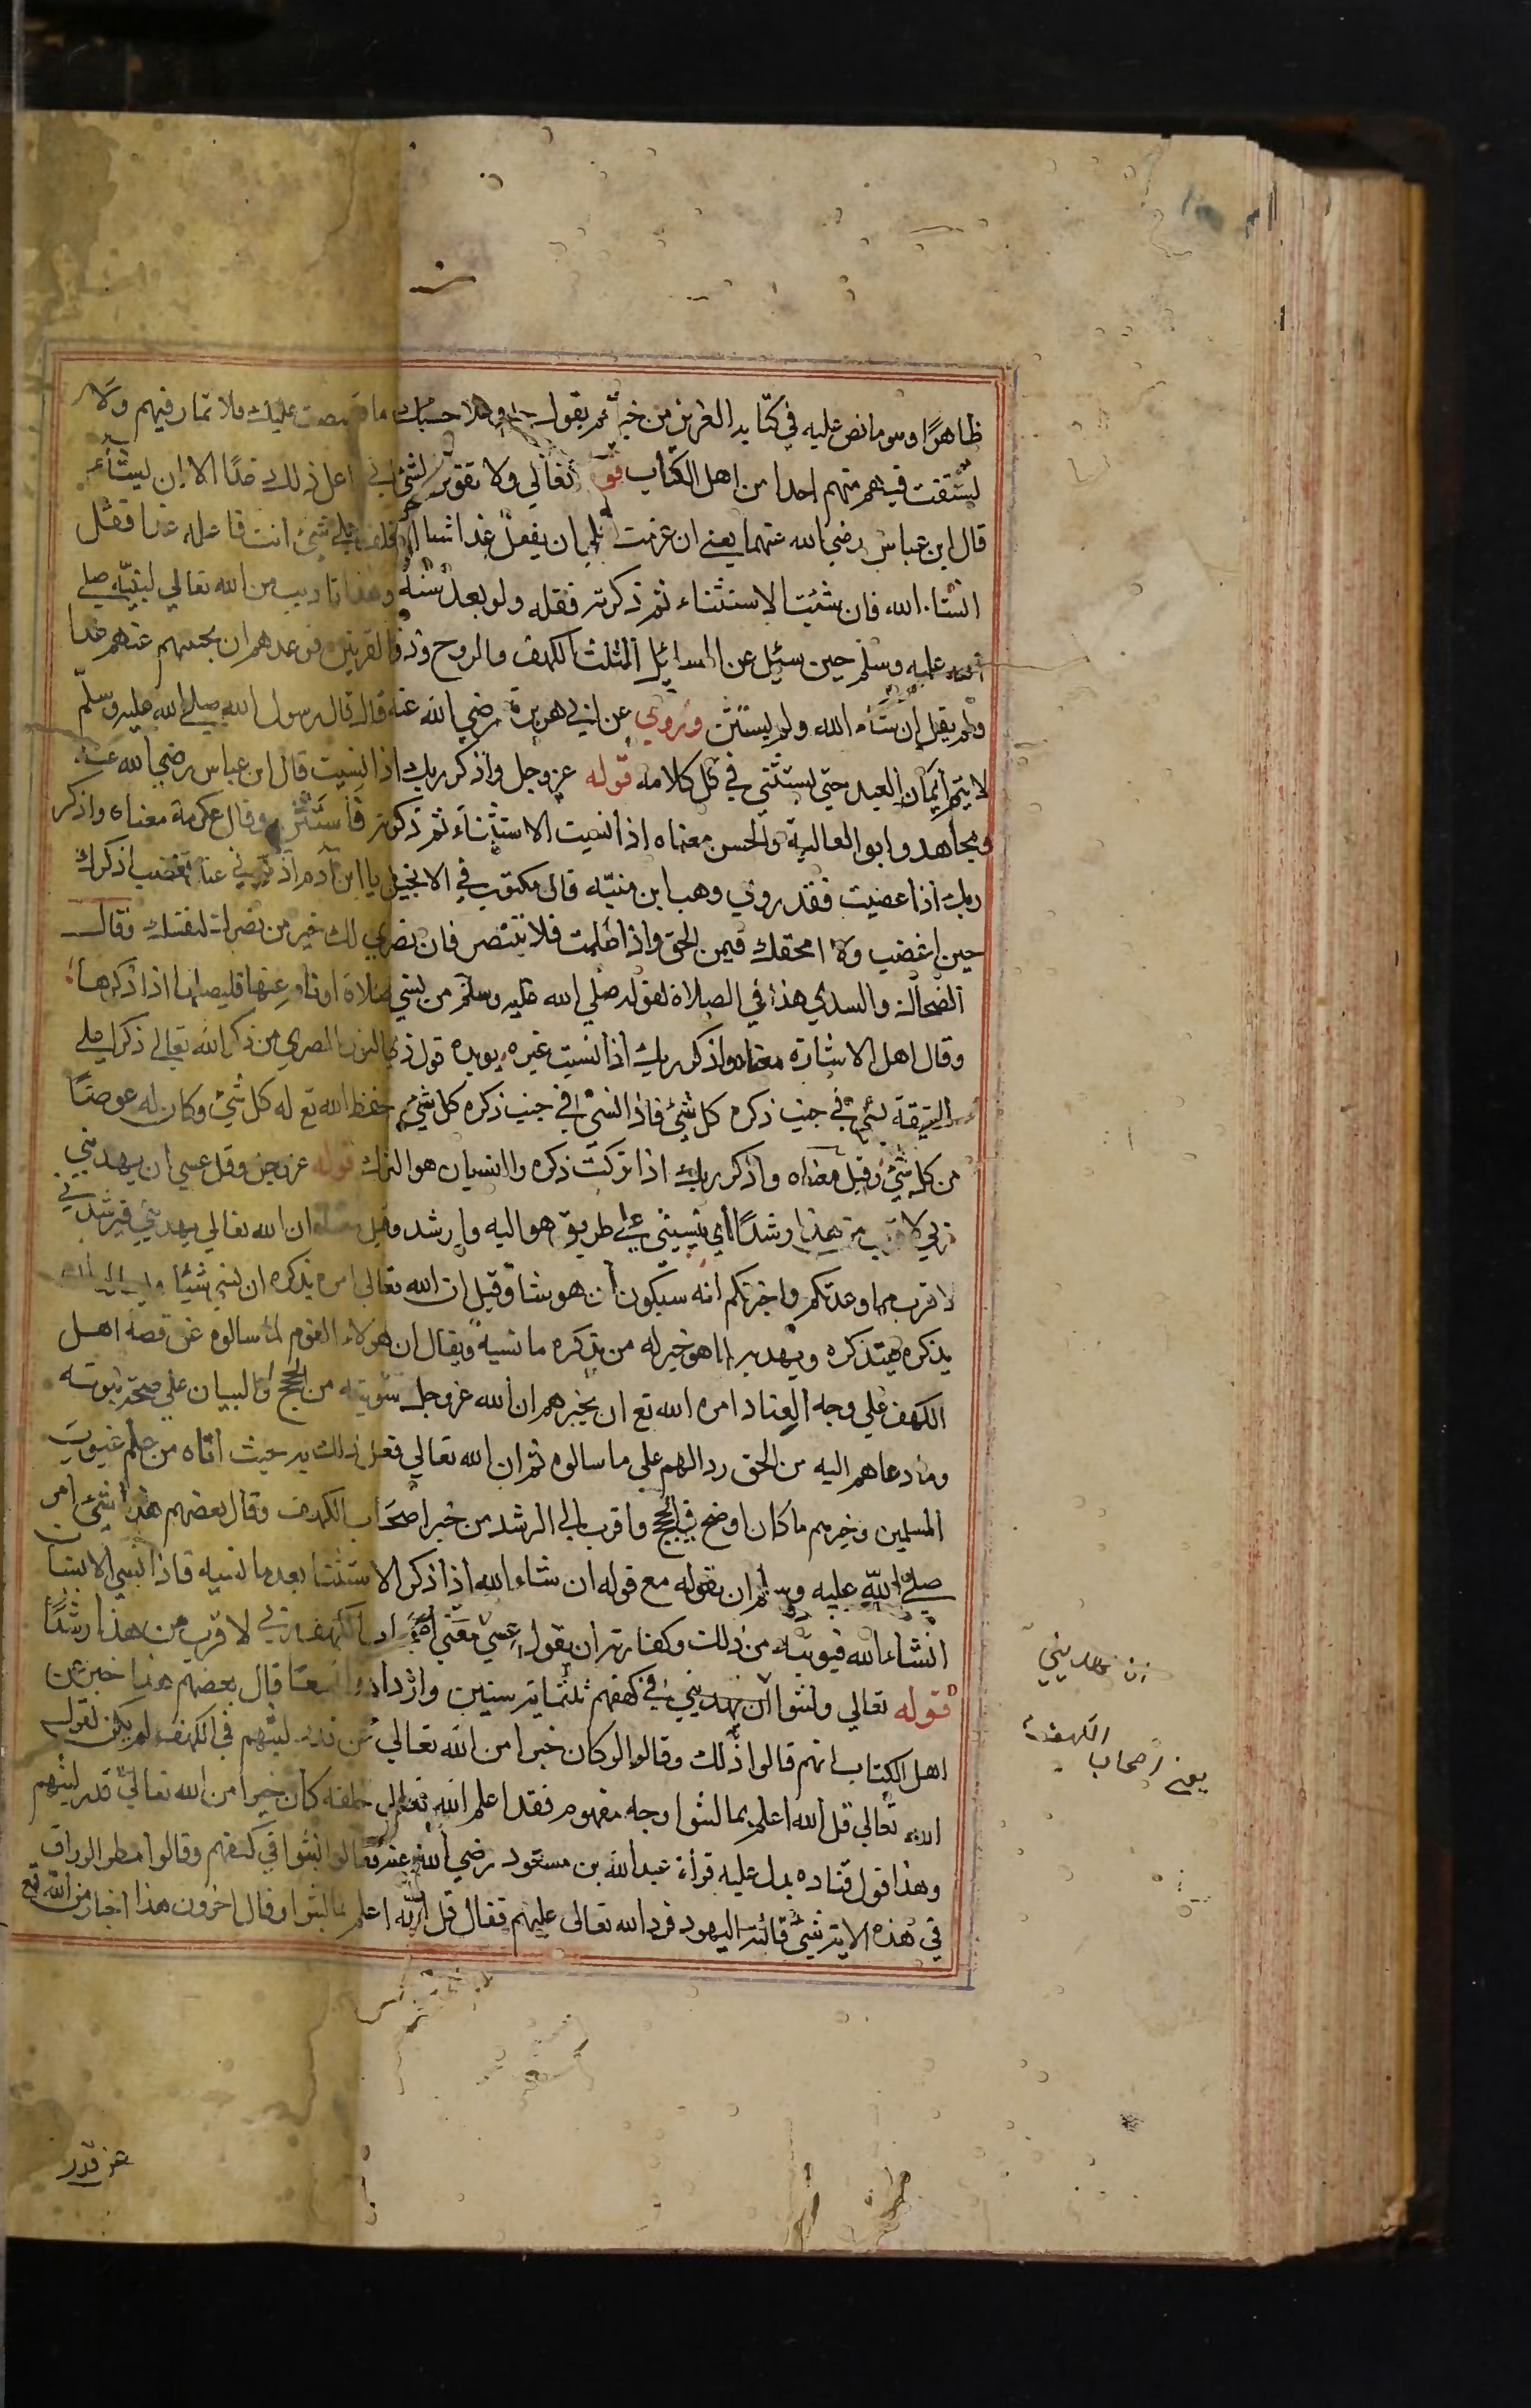 ظاهرًا وهو ما نص عليه في كتابه العزيز من خبرهم يقول حسبك ما قصصت عليك فلا تمار فيهم ولا
تستفت فيهم منهم احدا من اهل الكتاب قوله تعالي ولا تقولن لشئ اني فاعل ذلك غدًا الا ان يشآء
قال ابن عباس رضي الله عنهما يعني ان عزمت علي ان يفعل غدا شيا او تحلف علي شئ انت فاعله غدا فقل
انشا الله فان نسيت الاستثناء ثم ذكرته فقله ولو بعد سنة وهذا تاديب من الله تعالي لنبيّه صلي
الله عليه وسلم حين سئل عن المسائل المثلث الكهف والروح وذي القرنين فوعدهم ان يجيبهم عنهم غدا
ولم يقل ان شآء الله ولم يستثن وروي عن ابي هريرة رضي الله عنه قال قال رسول الله صلي الله عليه وسلّم
لا يتم ايمان العبد حتي يستثني في كل كلامه قوله عز وجل واذكر ربك اذا نسيت قال ابن عباس رضي الله عنه
ومجاهد وابو العالية والحسن معناه اذا نسيت الاستثناء ثم ذكرته فاستثن وقال عكرمة معناه واذكر
ربك اذا غضبت فقد روي وهب ابن منبّه قال مكتوب في الانجيل يا ابن آدم اذكرني عند تغضب اذكرك
حين اغضب ولا امحقك فيمن الحق واذا ظلمت فلا تنتصر فان نصري لك خير من نصرك لنفسك وقال
الضحاك والسدي هذا في الصلاة لقوله صلي الله عليه وسلم من نسي صلاة او نام عنها فليصلها اذا ذكرها
وقال اهل الاشارة معناه واذكر ربك اذا نسيت غيره يويده قول ذي النون المصري من ذكر الله تعالي ذكرا علي
الحقيقة نسي في جنب ذكره كل شئ فاذا نسي في جنب ذكره كل شئ حفظ الله تع له كل شئ وكان له عوضًا
من كل شئ وقيل معناه واذكر ربك اذا تركت ذكره والنسيان هو الترك قوله عز وجل وقل عسي ان يهديني
ربي لاقرب من هذا رشدًا اي يثبتني علي طريق هو اليه وارشد وقيل معناه ان الله تعالي يهديني فيرشدني
لاقرب مما وعدتكم واخبرتكم انه سيكون ان هو شا وقيل ان الله تعالي امره يذكره ان نسي شيئا
يذكره فيتذكره ويهديه لما هو خير له من تذكره ما نسيه ويقال ان هولاء القوم لما سالوه عن قصة اهل
الكهف علي وجه العناد امره الله تع ان يخبرهم ان الله عز وجل سيوتيه من الحجج والبيان علي صحة نبوته
وما دعاهم اليه من الحق رد الهم علي ما سالوه ثم ان الله تعالي فعل ذلك به حيث اتاه من علم غيوب
المسلمين وخبرهم ما كان اوضح في الحجج واقرب الي الرشد من خبر اصحاب الكهف وقال بعضهم هذا شئ امر
صلي الله عليه وسلم ان يقوله مع قوله ان شاء الله اذا ذكر الاستثنا بعد ما نسيه فاذا نسي الانسان
انشاء الله فتوبته من ذلك وكفارته ان يقول عسي ربي لاقرب من هذا رشدًا
قوله تعالي ولبثوا في كهفهم ثلثماية سنين وازدادوا تسعًا قال بعضهم هذا خبر عن
اهل الكتاب انهم قالوا ذلك وقالوا لو كان خبرا من الله تعالي عن قدر لبثهم في الكهف لم يكن لقول
الله تعالي قل الله اعلم بما لبثوا وجه مفهوم فقد اعلم الله تعالي خلقه كان خبرا من الله تعالي قدر لبثهم
وهذا قول قتاده يدل عليه قرأة عبد الله بن مسعود رضي الله عنه وقالوا لبثوا في كهفهم وقالوا مطر الوراق
في هذه الاية شئ قالته اليهود فرد الله تعالي عليهم فقال قل الله اعلم بما لبثوا وقال اخرون هذا اخبار من الله تع
ان يهديني
يعني اصحاب الكهف
عن قدر